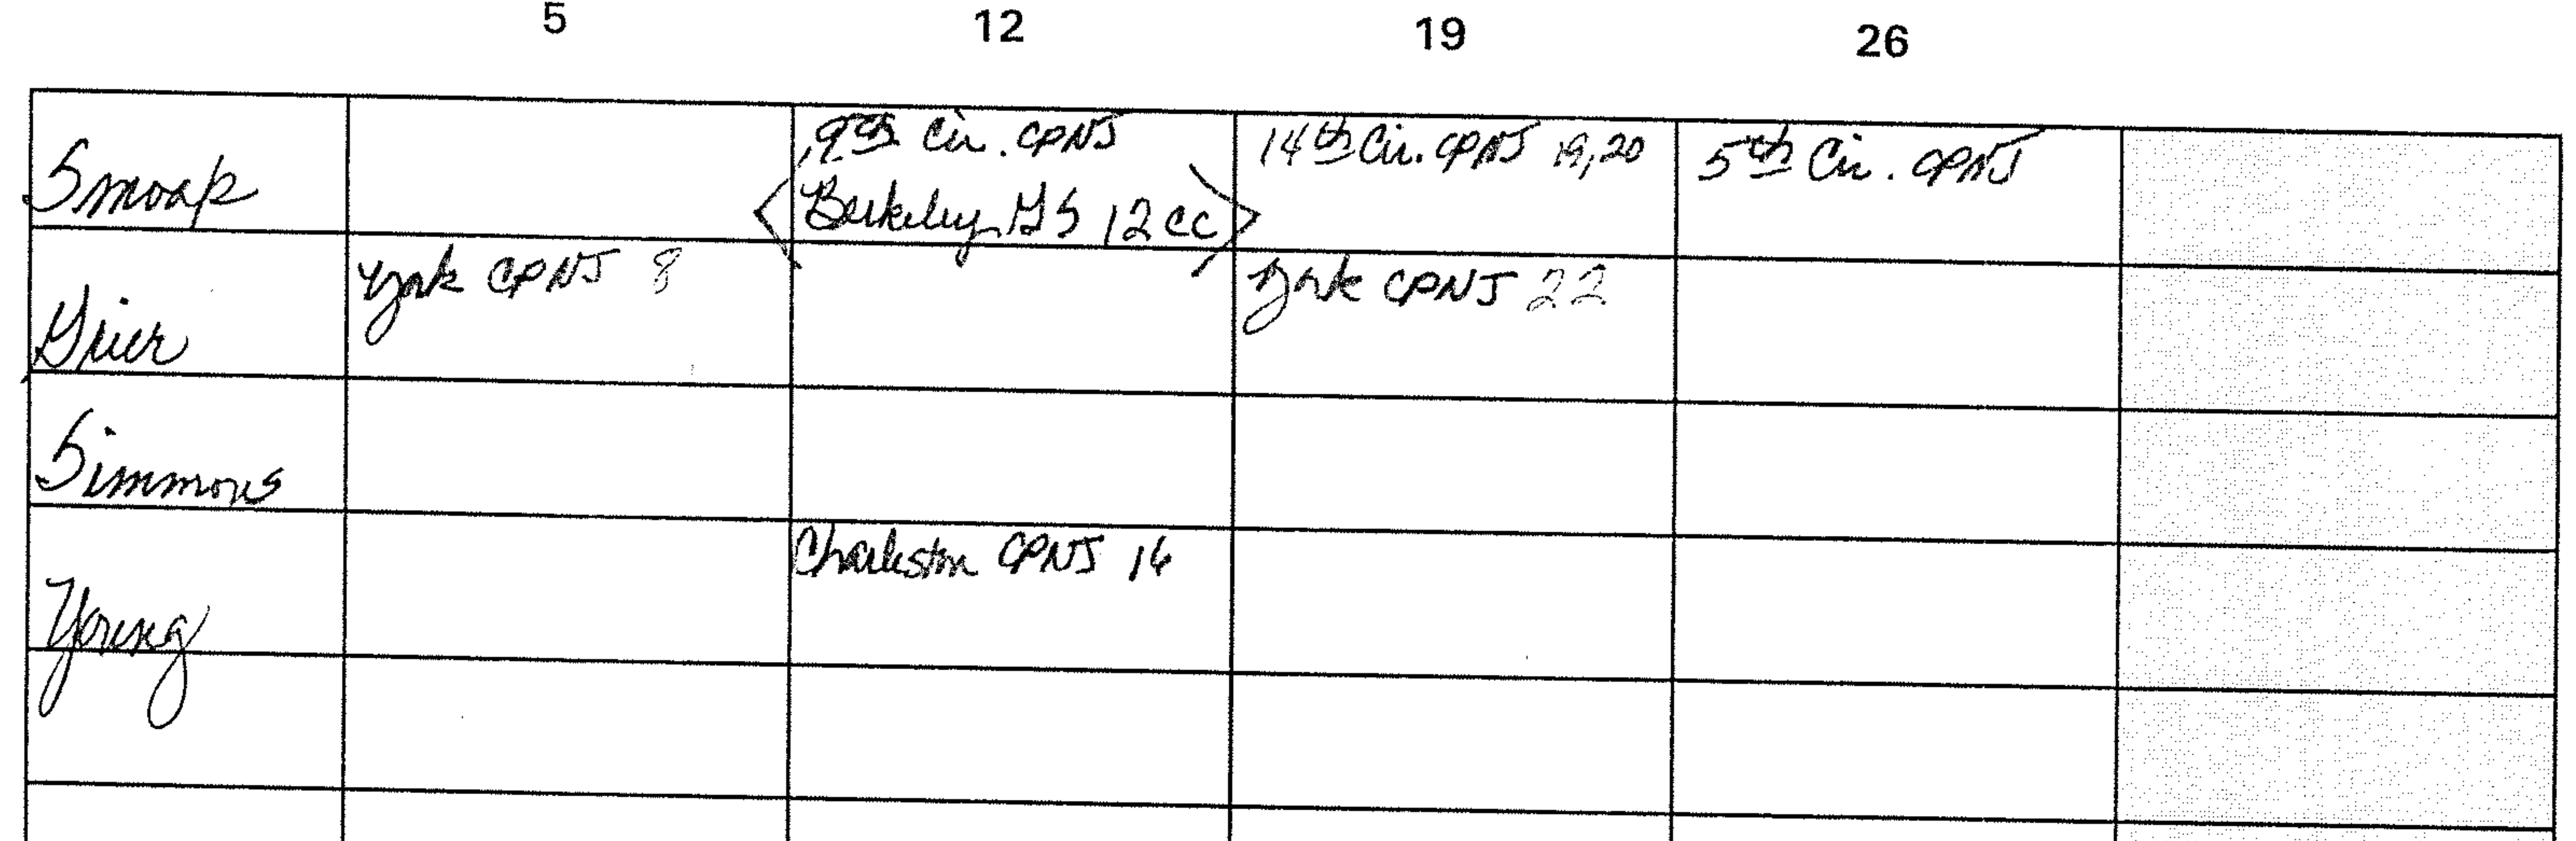 5 12 19 26
Smoak
9th Cir. CPNJ
Berkeley GS 12 CC
14th Cir. CPNJ 19,20
5th Cir. CPNJ
Grier
York CPNJ 8
York CPNJ 22
Simmons
Young
Charleston CPNJ 16